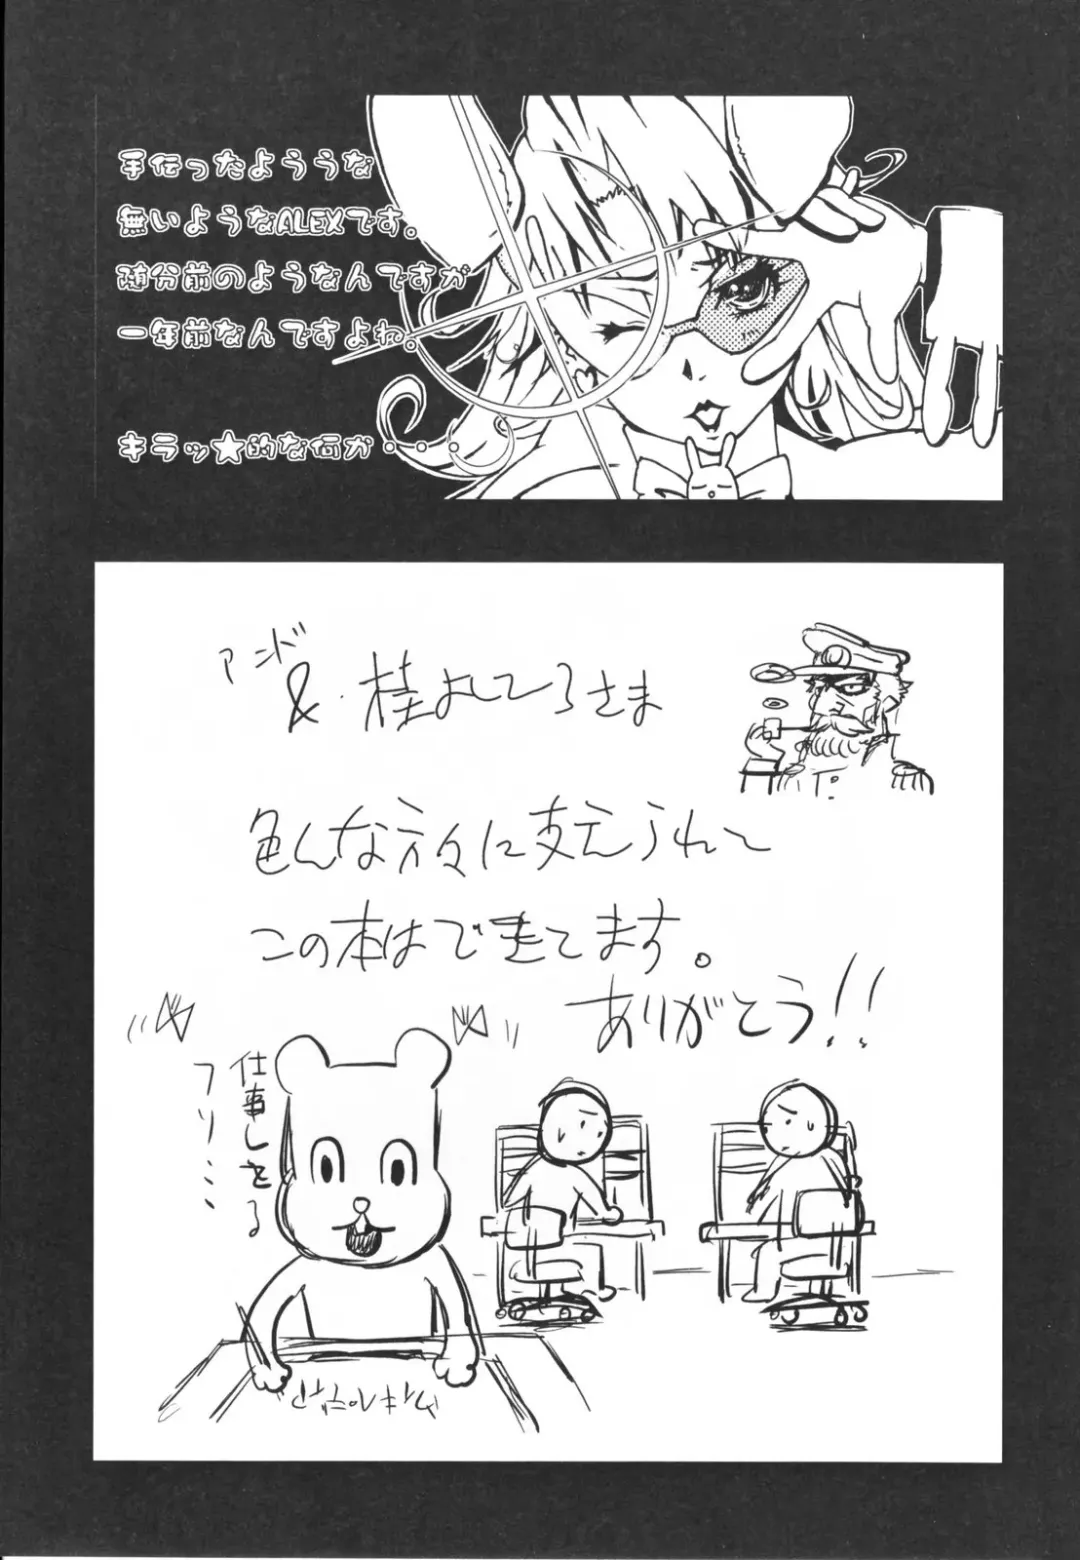 手伝ったよううな
無いようなALEXです。
随分前のようなんですが
一年前なんですよね。
キラッ★的な何か・・・
アンド
&・桂よしひろさま
色んな方々に支えられて
この本はできてます。
ありがとう!!
仕事しをる
フリ…